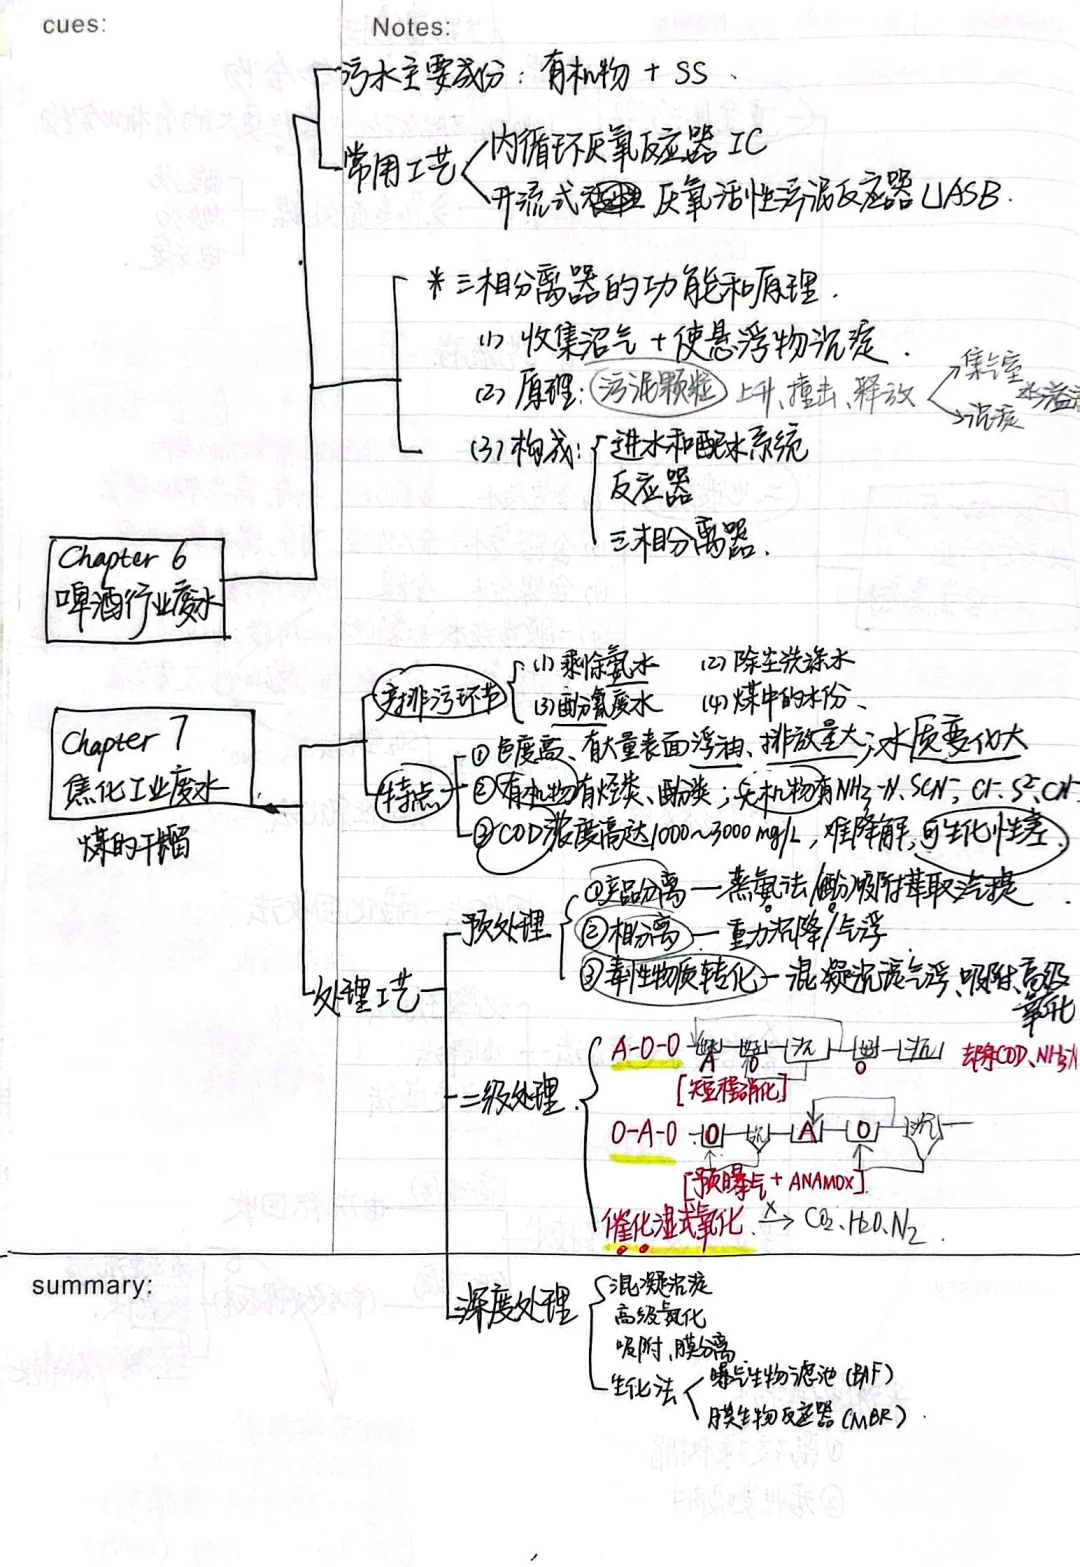 cues:
Notes:
污水主要成份：有机物 + SS .
常用工艺
内循环厌氧反应器 IC
升流式 厌氧活性污泥反应器 UASB .
* 三相分离器的功能和原理 .
(1) 收集沼气 + 使悬浮物沉淀 .
(2) 原理：污泥颗粒 上升、撞击、释放
集气室
沉淀
水溢流
(3) 构成：进水和配水系统
反应器
三相分离器 .
Chapter 6
啤酒行业废水
Chapter 7
焦化工业废水
煤的干馏
排污环节
(1) 剩余氨水 (2) 除尘洗涤水
(3) 酚氰废水 (4) 煤中的水份、
特点
① 色度高、有大量表面浮油、排放量大；水质变化大
② 有机物有烃类、酚类；无机物有NH₃-N、SCN⁻、Cl⁻、S²⁻、CN⁻
③ COD浓度高达1000~3000 mg/L，难降解，可生化性差 .
处理工艺
预处理
① 产品分离 — 蒸氨法/酚吸附萃取汽提 .
② 相分离 — 重力沉降/气浮 .
③ 毒性物质转化 — 混凝沉淀气浮、吸附、高级
氧化
二级处理 .
A-O-O
A
O
沉
O
沉
去除COD、NH₃-N
[短程硝化]
O-A-O
O
沉
A
O
沉
[预曝气 + ANAMOX] .
催化湿式氧化 . → CO₂、H₂O、N₂ .
summary:
深度处理
混凝沉淀
高级氧化
吸附、膜分离
生化法
曝气生物滤池 (BAF)
膜生物反应器 (MBR) .